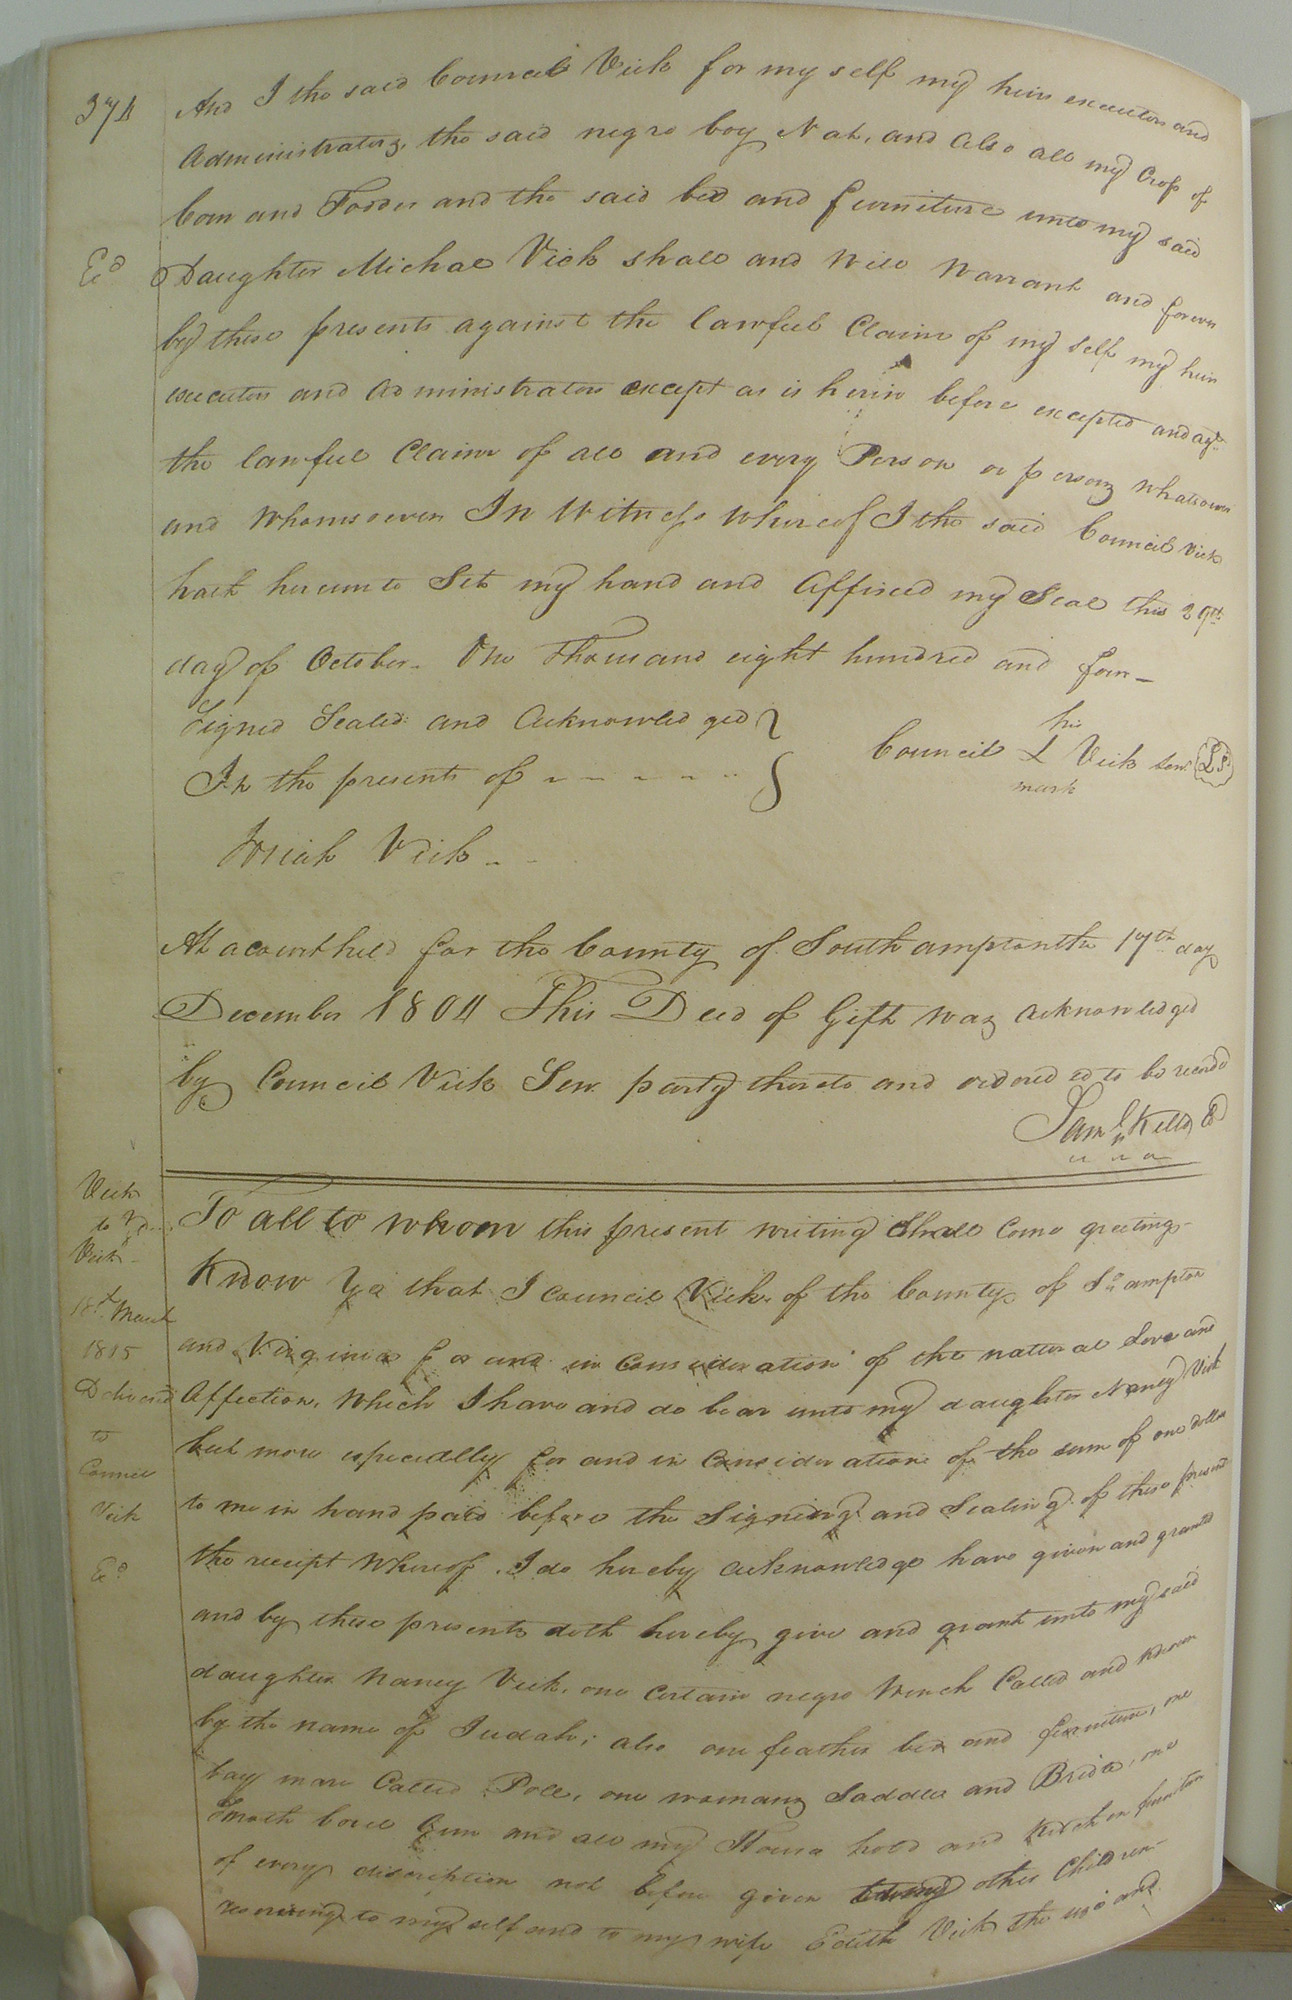 374
And I the said Council Vick for my self my heirs executors and
Administrators, the said negro boy Nat, and also all my Crop of
Corn and Fodder and the said bed and furniture unto my said
Exd
Daughter Michal Vick shall and will Warrant and forever
by these presents against the lawfull Claim of my self my heirs
executors and Administrators except as is herein before excepted and agt.
the lawfull Claim of all and every Person or persons whatsoever
and Whomsoever In Witness Whereof I the said Council Vick
hath hereunto Set my hand and Affixed my Seal this 29th
day of October. One Thousand eight hundred and four—
Signed Sealed and Acknowledged
In the presents of
his
Council Vick Senr. L S
mark
Josiah Vick
At a court held for the County of Southampton the 17th day
December 1804 This Deed of Gift was acknowledged
by Council Vick Senr. party thereto and ordered to be recorded
Saml Kello C
Vick
to
Vick
18th March
1815
Delivered
to
Council
Vick
Exd
To all to whom this present writing shall Come greeting
Know Ye that I Council Vick of the County of So. ampton
and Virginia for and in Consideration of the natural Love and
Affection, Which I have and do bear unto my daughter Nancy Vick
but more especially for and in Consideration of the sum of one dollar
to me in hand paid before the Signing and Sealing of these presents
the receipt Whereof I do hereby acknowledge have given and granted
and by these presents doth hereby give and grant unto my said
daughter Nancy Vick, one certain negro Wench Called and known
by the name of Judah; also one feather bed and furniture, one
bay mare Called Poll, one womans Saddle and Bridle, one
Smoth bore Gun and all my House hold and Kitchen furniture
of every discription not before given to my other Children
reserving to my self and to my wife Edith Vick the use and